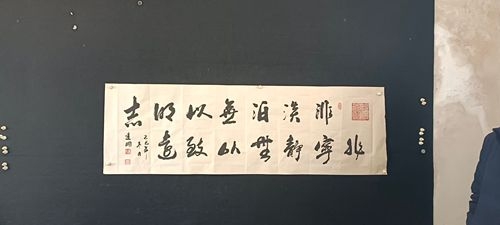 非淡泊無以明志
非寧静無以致遠
乙巳年